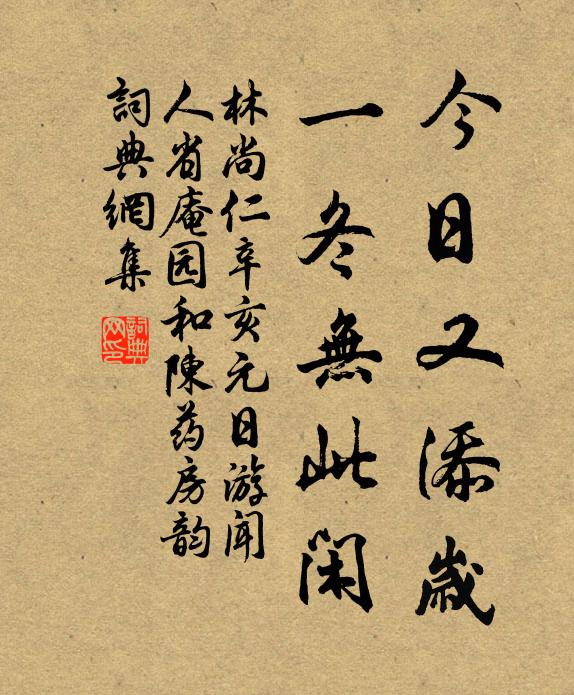 今日又添歲
一冬無此閑
林尚仁辛亥元日游聞
人省庵园和陳药房韵
詞典網集
詞典网印